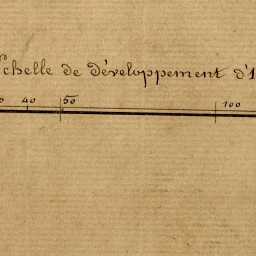 chelle de développement d'1
0 40 50 100